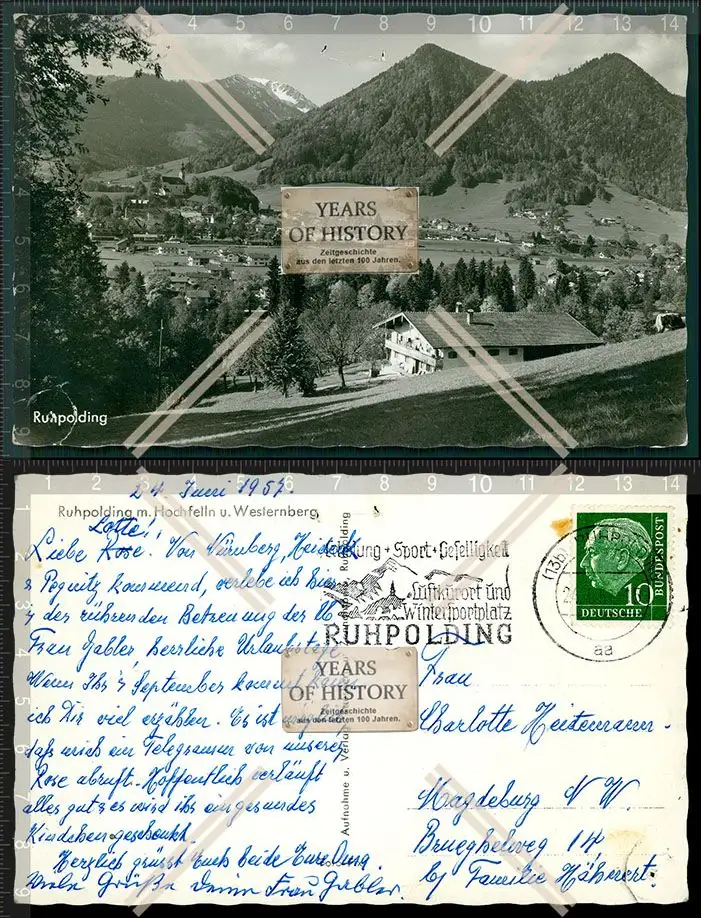 YEARS
OF HISTORY
Zeitgeschichte
aus den letzten 100 Jahren.
Ruhpolding
24. Juni 1957.
Ruhpolding m. Hochfelln u. Westernberg
Lotte!,
Liebe Rose. Von Nürnberg,
Pegnitz kommend, verlebe ich hier
der rührenden Betreuung der
Frau Gabler herrliche Urlaubstage
Wenn Ihr September kommt kann
ich Dir viel erzählen. Es ist
daß mich ein Telegramm von unserer
Rose abruft. Hoffentlich verläuft
alles gut, es wird ihr ein gesundes
Kindchen geschenkt.
Herzlich grüsst Euch beide Eure
Viele Grüße Deine Frau Gabler.
Aufnahme u. Verlag
Ruhpolding
Erholung + Sport + Geselligkeit
Luftkurort und
Wintersportplatz
RUHPOLDING
(13b)
aa
10
DEUTSCHE
BUNDESPOST
YEARS
OF HISTORY
Zeitgeschichte
aus den letzten 100 Jahren.
Frau
Charlotte Heitemann
Magdeburg N W.
Brueghelweg 14
b/ Familie Hähnert.